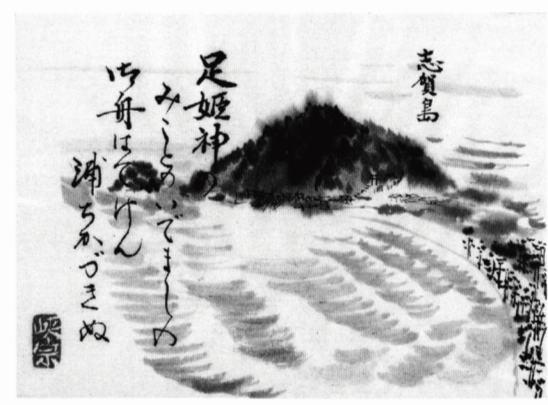 志賀島
足姫神の
みことのいでましの
御舟はてけん
浦ちかづきぬ